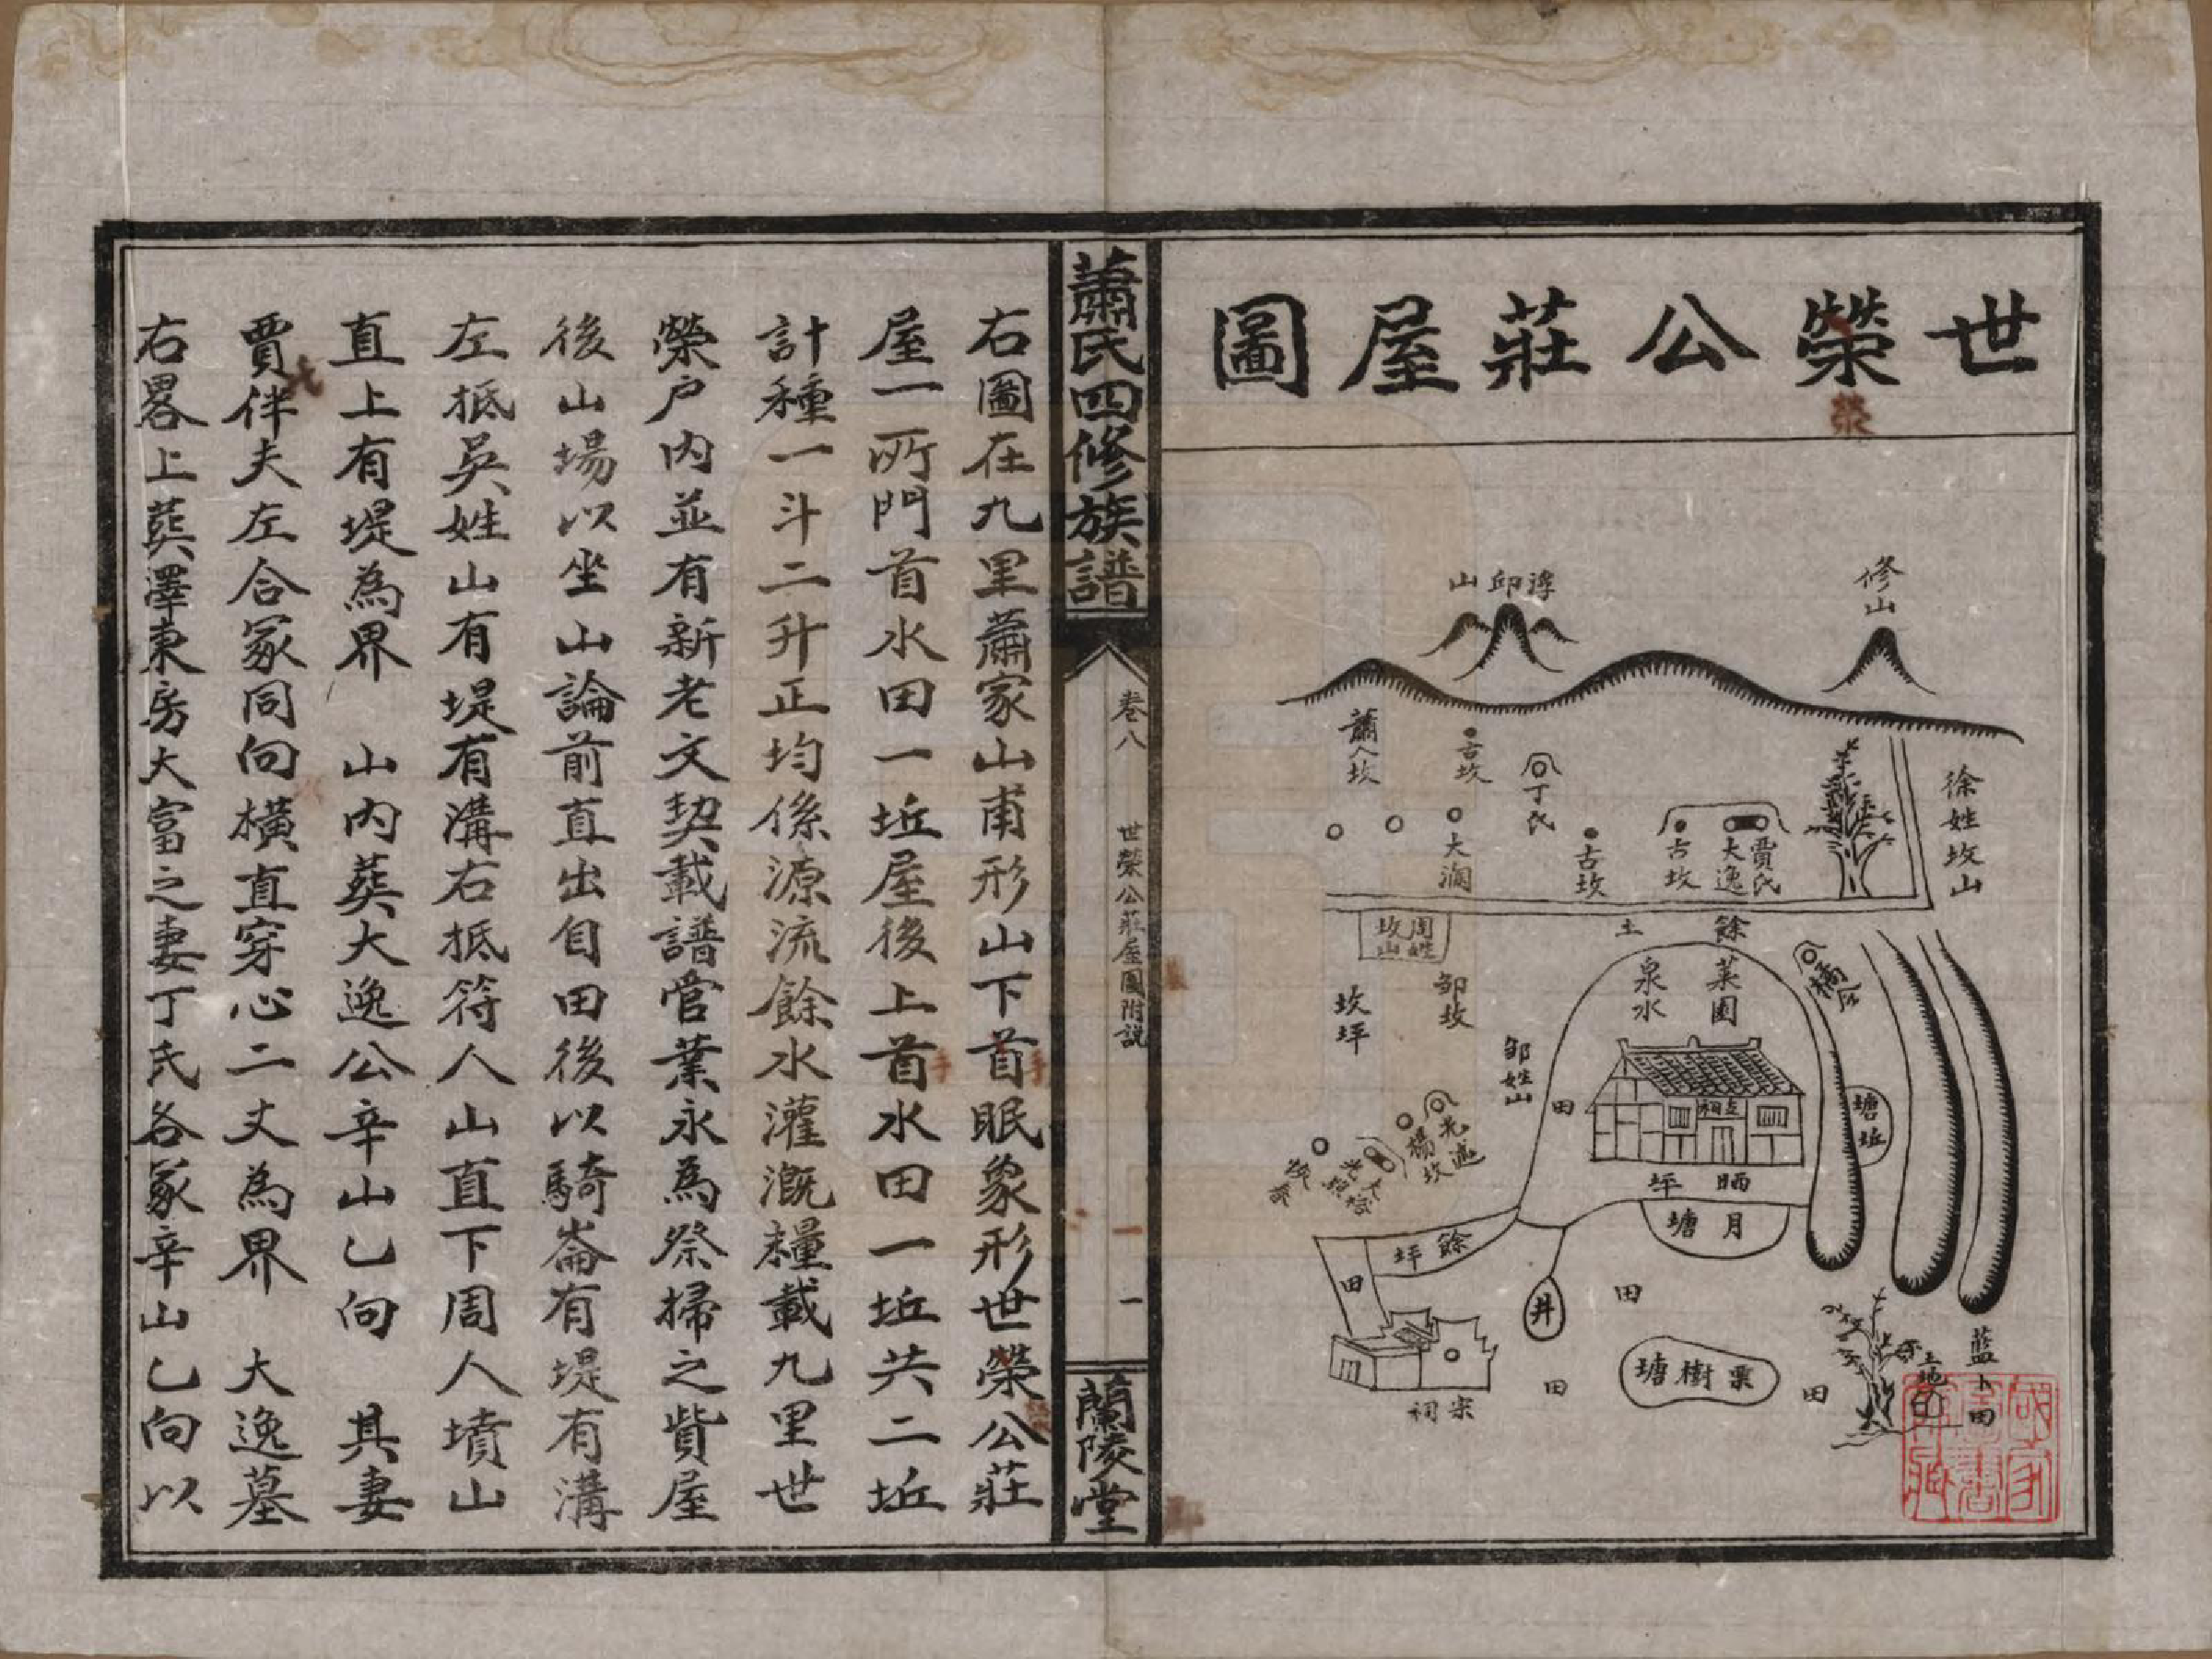 世榮公莊屋圖
榮
修山
浮邱山
徐姓坟山
賈氏
大逸
古坟
古坟
丁氏
古坟
大瀾
蕭人坟
餘
土
周姓
坟山
菜園
泉水
鄒坟
坟坪
鄒姓山
田
塘坵
晒坪
月塘
餘坪
田
井
田
栗樹塘
田
田
宗祠
土地
田
蕭氏四修族譜
卷八
世榮公莊屋圖附說
一
蘭陵堂
右圖在九里蕭家山甫形山下首眠象形世榮公莊
屋一所門首水田一坵屋後上首水田一坵共二坵
計種一斗二升正均係源流餘水灌溉糧載九里世
榮户内並有新老文契載譜管業永為祭掃之貲屋
後山場以坐山論前直出自田後以騎崙有堤有溝
左抵吳姓山有堤有溝右抵符人山直下周人墳山
直上有堤為界　山内葬大逸公辛山乚向　其妻
賈伴夫左合冢同向橫直穿心二丈為界　大逸墓
右畧上葬澤東房大富之妻丁氏各冢辛山乚向以